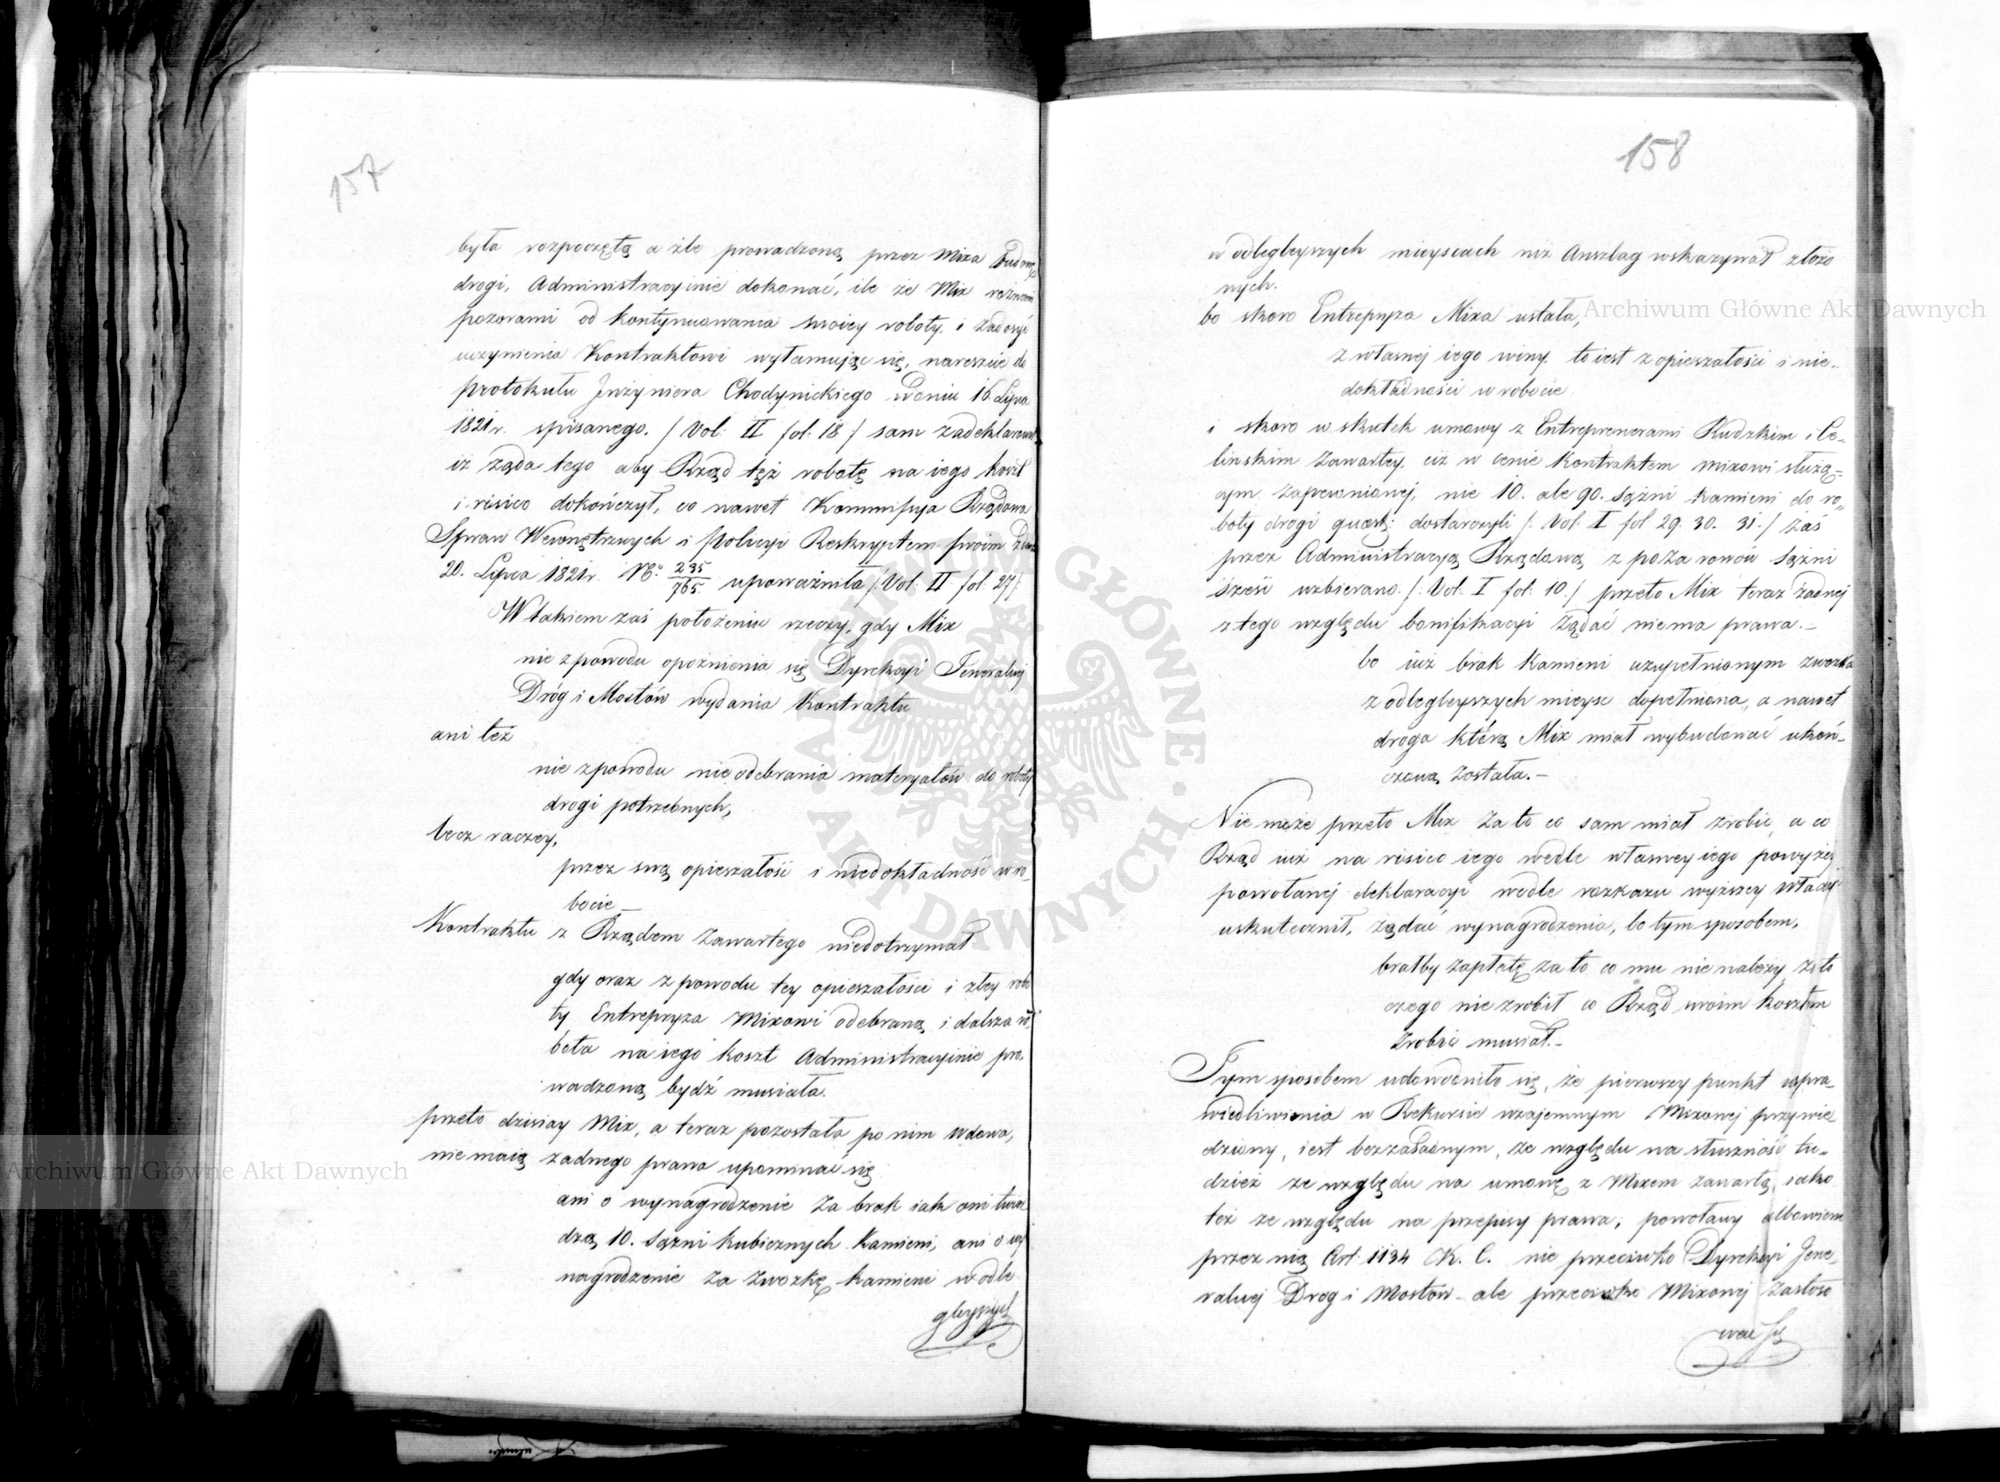 157
była rozpoczętą a źle prowadzoną przez Mixa budowę
drogi, Administracyinie dokonać, ile że Mix różnemi
pozorami od kontynuowania swoiey roboty i zadosyć
uczynienia Kontraktowi wyłamuiąc się, nareszcie do
protokułu Inżyniera Chodynickiego w dniu 16 Lipca
1821 r. spisanego. /: Vol: II fol: 18 :/ sam zadeklarował
iż żąda tego aby Rząd też robotę na iego koszt
i risico dokończył, co nawet Kommissya Rządowa
Spraw Wewnętrznych i Policyi Reskryptem swoim z dnia
20. Lipca 1821 r. No. 235/765 upoważniła /: Vol: II fol: 27 :/
W takiem zaś położeniu rzeczy, gdy Mix
nie z powodu opoźnienia się Dyrekcyi Jeneralney
Dróg i Mostów wydania Kontraktu
ani też
nie z powodu nieodebrania materyałów do roboty
drogi potrzebnych,
lecz raczey,
przez swą opieszałość i niedokładność w ro-
bocie
Kontraktu z Rządem zawartego niedotrzymał
gdy oraz z powodu tey opieszałości i złey robo
ty Entrepryza Mixowi odebraną i dalsza ro-
bota na iego koszt Administracyinie pro-
wadzoną bydź musiała.
przeto dzisiay Mix, a teraz pozostała po nim wdowa,
nie maią żadnego prawa upominać się
ani o wynagrodzenie za brak iak oni twier
dzą 10. sążni kubicznych kamieni, ani o wy
nagrodzenie za zwozkę kamieni w odle
gleyszych
158
w odlegleyszych mieyscach niż Anszlag wskazywał złożo
nych.
bo skoro Entrepryza Mixa ustała,
z własnej iego winy to iest z opieszałości i nie-
dokładności w robocie
i skoro w skutek umowy z Entreprenerami Rudzkim i Ce-
linskim zawartey, ciż w cenie kontraktem Mixowi służą-
cym zapewnionej, nie 10. ale 90. sążni kamieni do ro-
boty drogi quaest: dostarczyli /: Vol: I fol 29. 30. 31. :/ zaś
przez Administracyą Rządową z poza rowów sążni
sześć uzbierano /: Vol: I fol: 10. :/ przeto Mix teraz żadnej
z tego względu bonifikacyi żądać niema prawa.-
bo iuż brak kamieni uzupełnionym zwozka
z odlegleyszych mieysc dopełniona, a nawet
droga którą Mix miał wybudować ukoń-
czoną została.-
Nie może przeto Mix za to co sam miał zrobić, a co
Rząd iuż na risico iego wedle własney iego powyżej
powołanej deklaracyi wedle rozkazu wyższey władzy
uskutecznił, żądać wynagrodzenia, bo tym sposobem,
brałby zapłatę za to co mu nie należy za to
czego nie zrobił co Rząd swoim kosztem
zrobić musiał.-
Tym sposobem udowodniło się, że pierwszy punkt uspra-
wiedliwienia w Rekursie wzajemnym Mixowej przywie
dziony, iest bezzasadnym, ze względu na słuszność tu-
dzież ze względu na umowę z Mixem zawartą, iako
też ze względu na przepisy prawa; powołany albowiem
przez nią Art. 1134 K. C. nie przeciwko Dyrekcyi Jene-
ralnej Dróg i Mostów - ale przeciwko Mixowej zastoso
wać się
Archiwum Główne Akt Dawnych
Archiwum Główne Akt Dawnych
ARCHIWUM GŁÓWNE AKT DAWNYCH